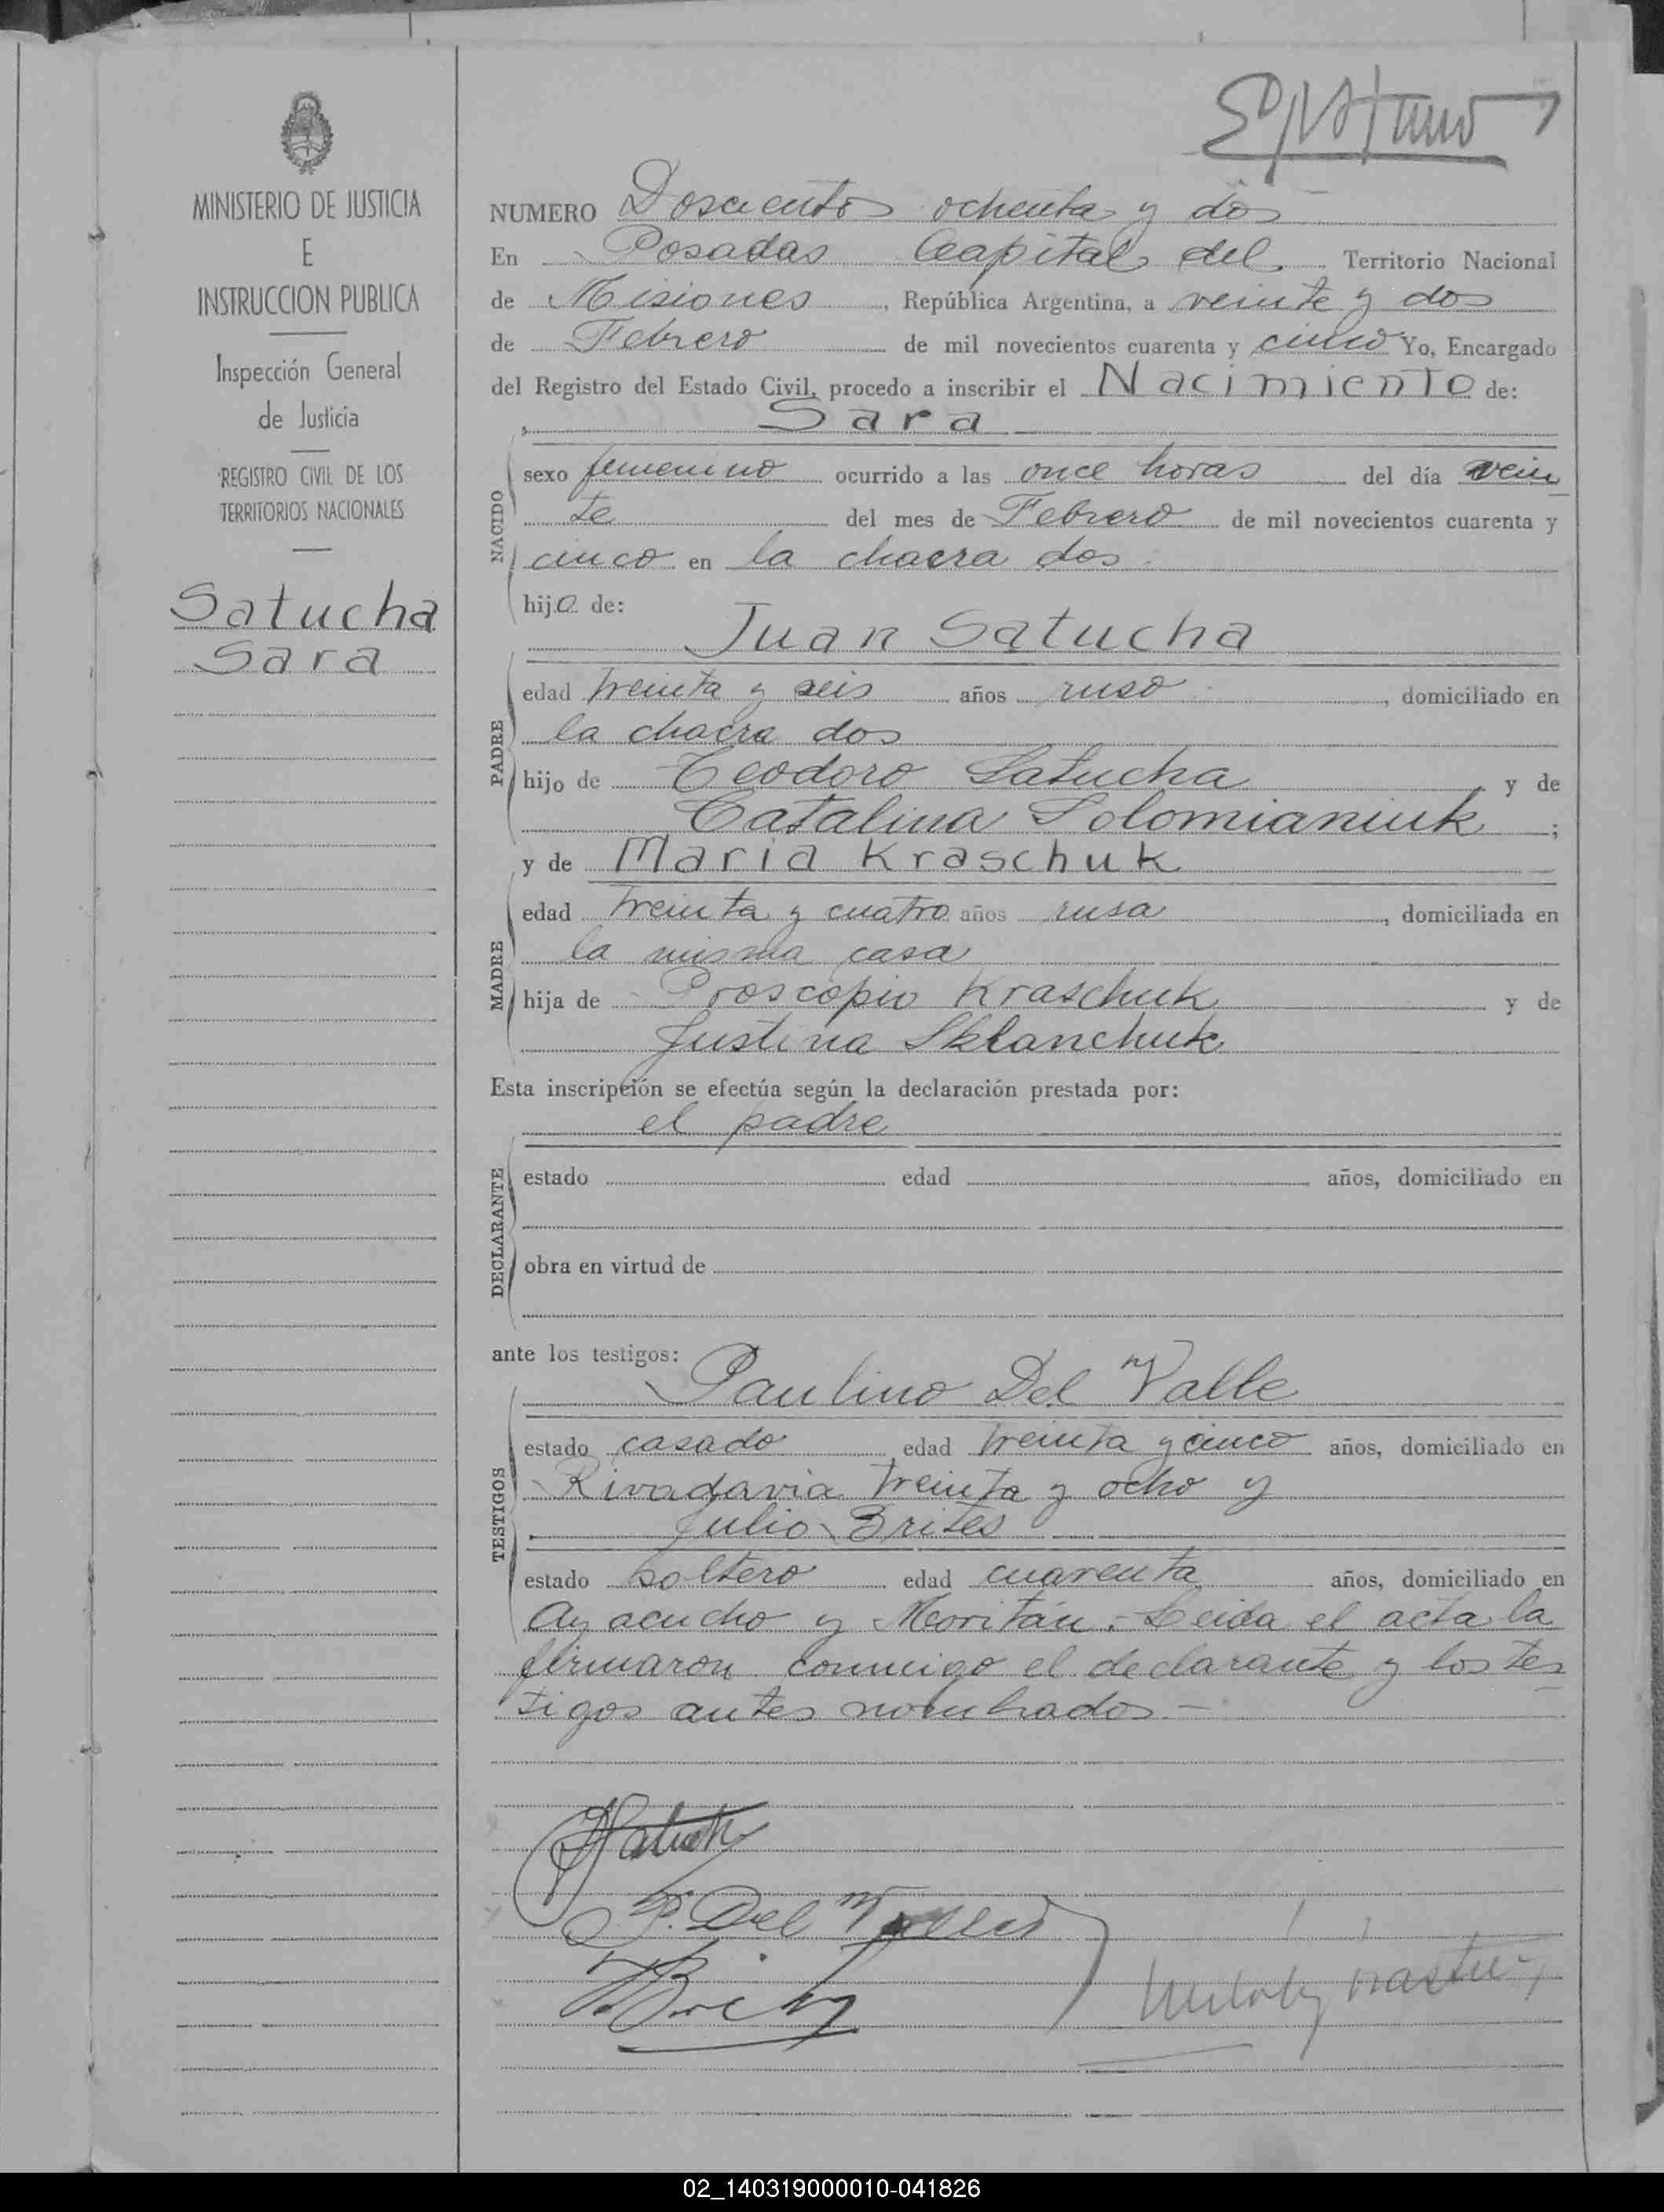 MINISTERIO DE JUSTICIA
E
INSTRUCCION PUBLICA
Inspección General
de Justicia
REGISTRO CIVIL DE LOS
TERRITORIOS NACIONALES
Satucha
Sara
NUMERO Doscientos ochenta y dos
En Posadas Capital del Territorio Nacional
de Misiones, República Argentina, a veinte y dos
de Febrero de mil novecientos cuarenta y cinco Yo, Encargado
del Registro del Estado Civil, procedo a inscribir el Nacimiento de:
Sara
NACIDO
sexo femenino ocurrido a las once horas del día vein
te del mes de Febrero de mil novecientos cuarenta y
cinco en la chacra dos.
hija de:
Juan Satucha
PADRE
edad treinta y seis años ruso, domiciliado en
la chacra dos
hijo de Teodoro Satucha y de
Catalina Solomianiuk;
y de Maria Kraschuk
MADRE
edad treinta y cuatro años rusa, domiciliada en
la misma casa
hija de Proscopio Kraschuk y de
Justina Sklanchuk
Esta inscripción se efectúa según la declaración prestada por:
el padre
DECLARANTE
estado edad años, domiciliado en
obra en virtud de
ante los testigos:
Paulino Del Valle
TESTIGOS
estado casado edad treinta y cinco años, domiciliado en
Rivadavia treinta y ocho y
Julio Brites
estado soltero edad cuarenta años, domiciliado en
Ayacucho y Moritán. Leida el acta la
firmaron conmigo el declarante y los tes
tigos antes nombrados.-
P. Del Valle
02_140319000010-041826